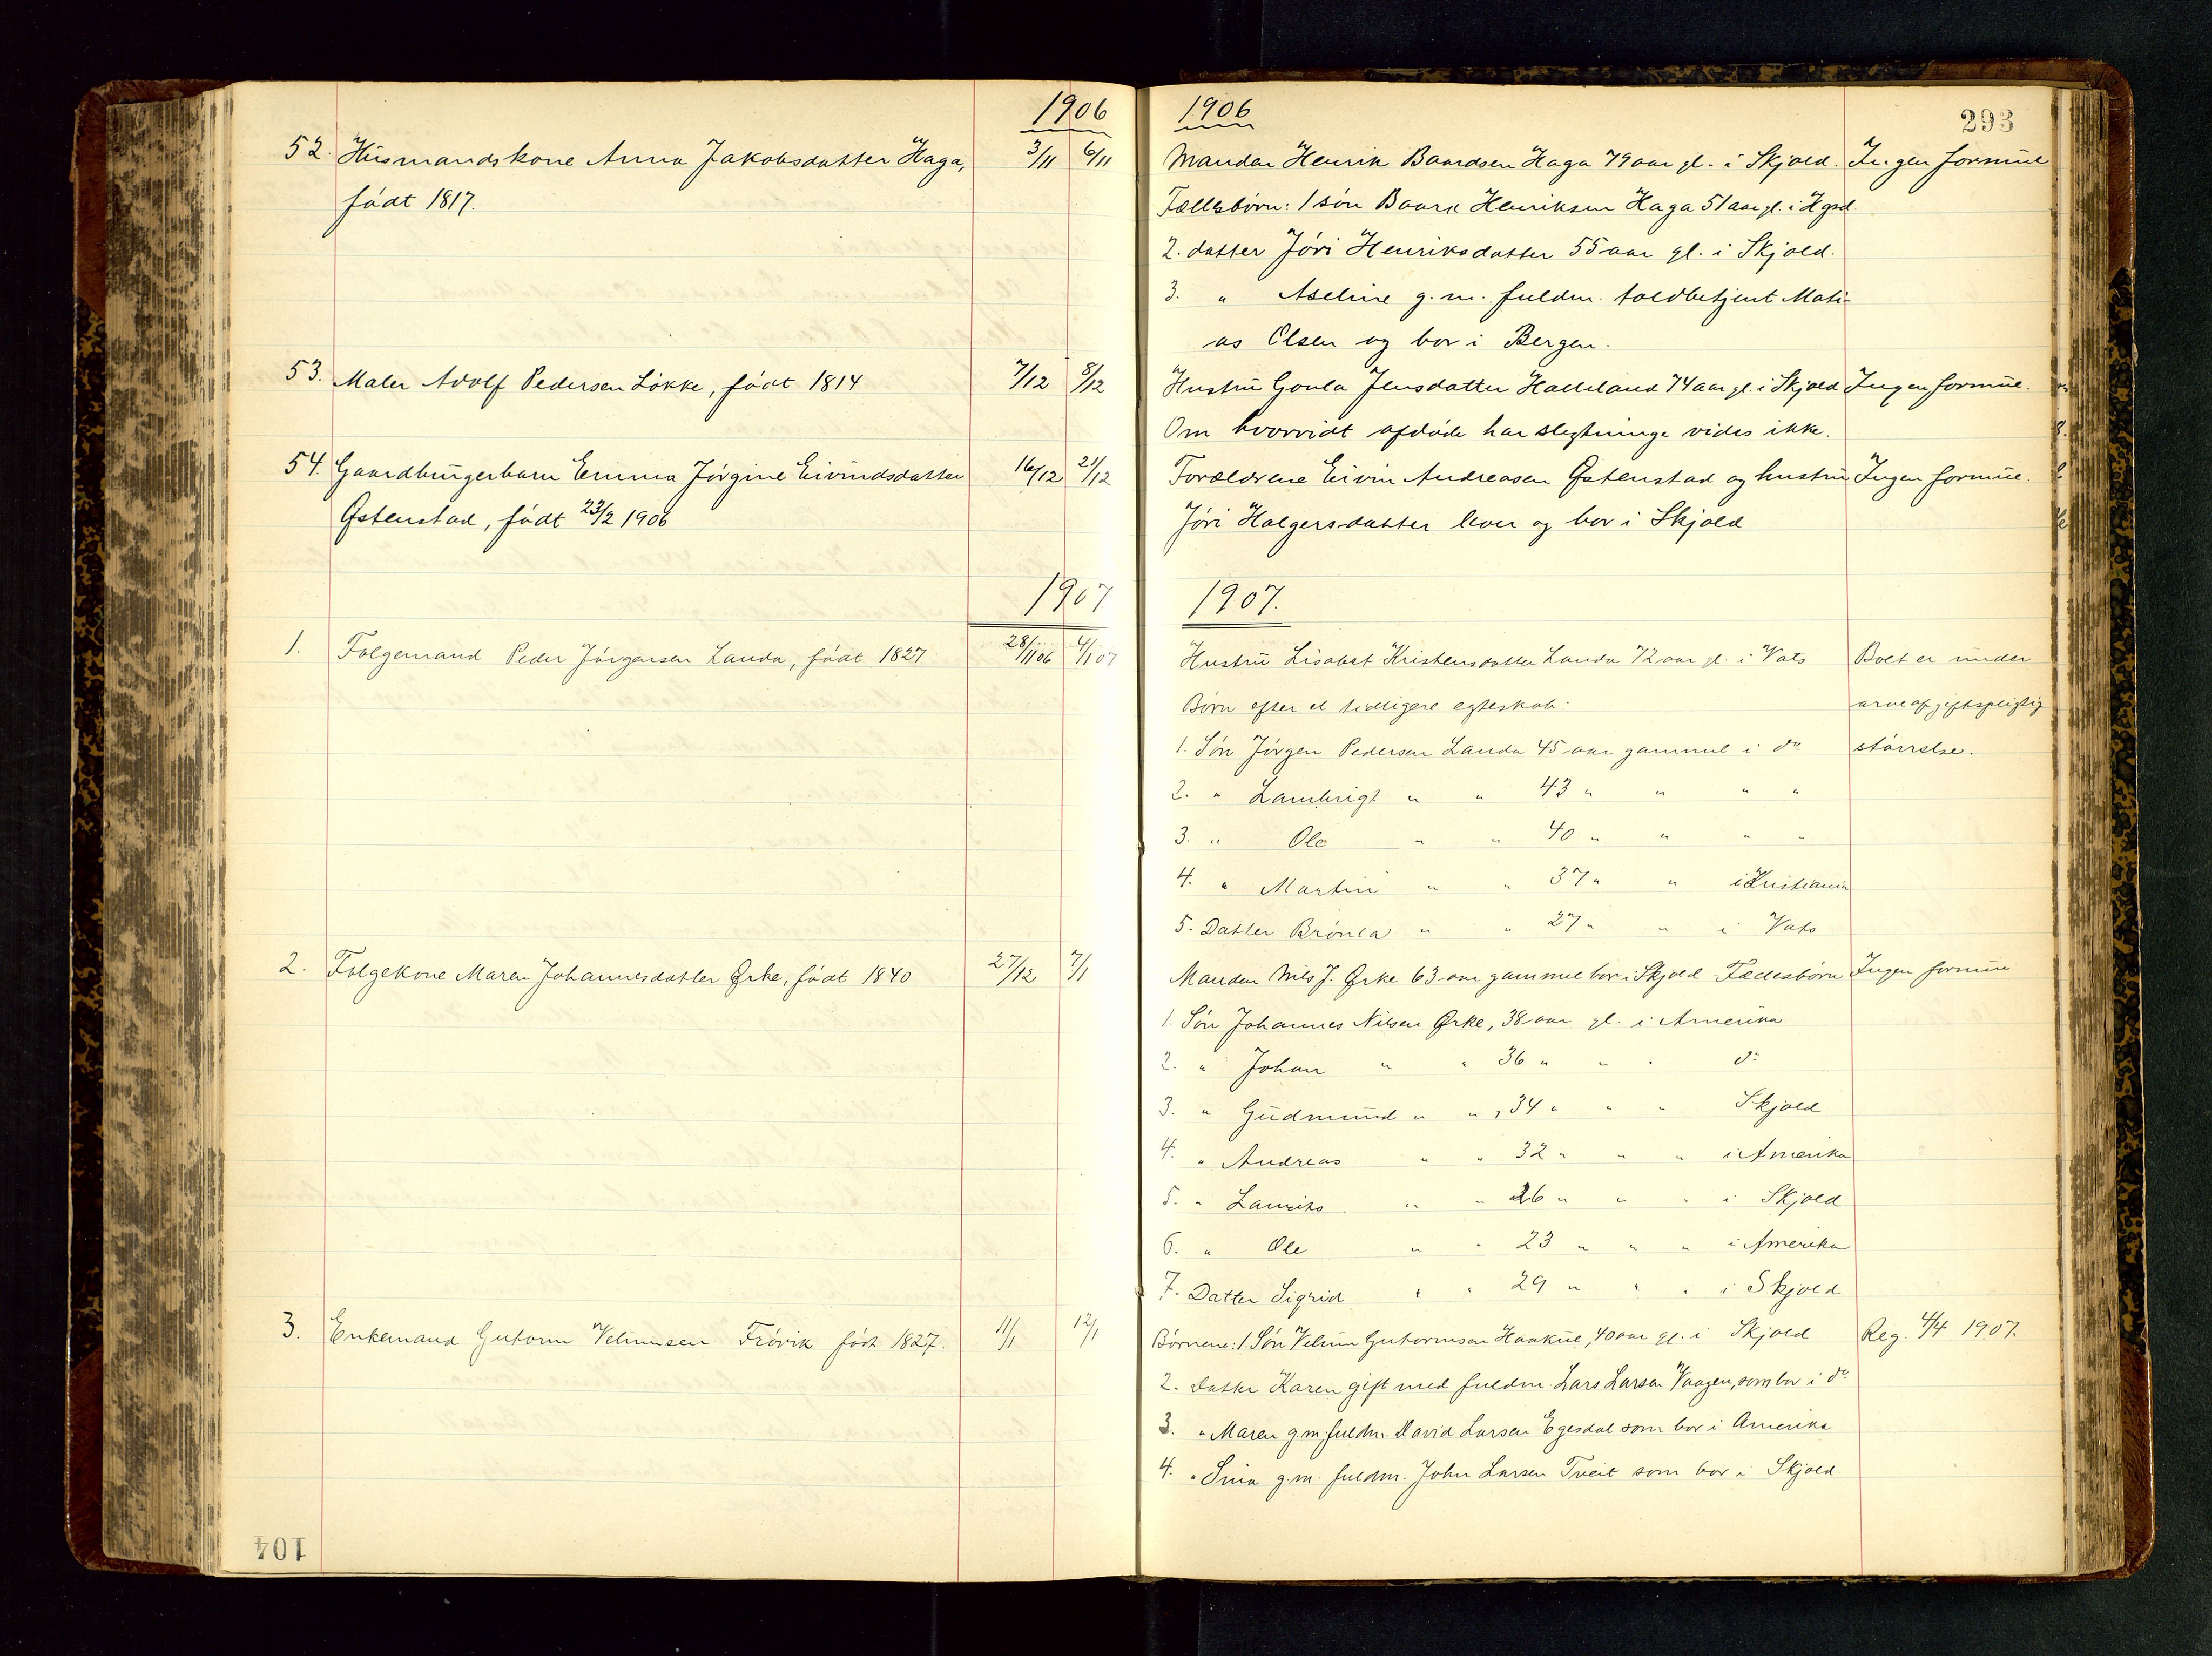 1906
52. Husmandskone Anna Jakobsdatter Haga, 3/11 6/11
født 1817.
53. Maler Adolf Pedersen Løkke, født 1814 7/12 8/12
54. Gaardbrugerbarn Emma Jørgine Eivindsdatter 16/12 21/12
Østenstad, født 23/2 1906
1907
1. Folgemand Peder Jørgensen Landa, født 1827 28/11 06 4/1 07
2. Folgekone Maren Johannesdatter Ørke, født 1840 27/12 7/1
3. Enkemand Gutorm Velumsen Frøvik født 1827. 11/1 12/1
104
1906
293
Manden Henrik Baardsen Haga 79 aar gl. i Skjold. Ingen formue
Fællesbørn: 1 søn Baard Henriksen Haga 51 aar gl. i Hgsd.
2. datter Jøri Henriksdatter 55 aar gl. i Skjold.
3. " Aseline g.m. fuldm. toldbetjent Mati-
as Olsen og bor i Bergen.
Hustru Gonla Jensdatter Halleland 74 aar gl. i Skjold Ingen formue.
Om hvorvidt afdøde har slegtninge vides ikke.
Forældrene Eivin Andreasen Østenstad og hustru Ingen formue.
Jøri Holgersdatter lever og bor i Skjold
1907.
Hustru Lisabet Kristensdatter Landa 72 aar gl. i Vats Boet er under
Børn efter et tidligere egteskab: arveafgiftspligtig
1. Søn Jørgen Pedersen Landa 45 aar gammel i do størrelse.
2. " Lambrigt " " 43 " " " "
3. " Ole " " 40 " " " "
4. " Martin " " 37 " " i Kristiania
5. Datter Brønla " " 27 " " i Vats
Manden Nils J. Ørke 63 aar gammel bor i Skjold Fællesbørn Ingen formue
1. Søn Johannes Nilsen Ørke, 38 aar gl. i Amerika
2. " Johan " " 36 " " " do
3. " Gudmund " ", 34 " " " Skjold
4. " Andreas " " 32 " " " i Amerika
5. " Laurits " " 26 " " " i Skjold
6. " Ole " " 23 " " " i Amerika
7. Datter Sigrid " " 29 " " " i Skjold
Børnene: 1. Søn Velum Gutormsen Haukul, 40 aar gl. i Skjold Reg. 4/4 1907.
2. Datter Karen gift med fuldm. Lars Larsen Vaagen, som bor i do
3. " Maren g.m. fuldm. David Larsen Egesdal som bor i Amerika
4. " Sina g.m. fuldm. John Larsen Tveit som bor i Skjold